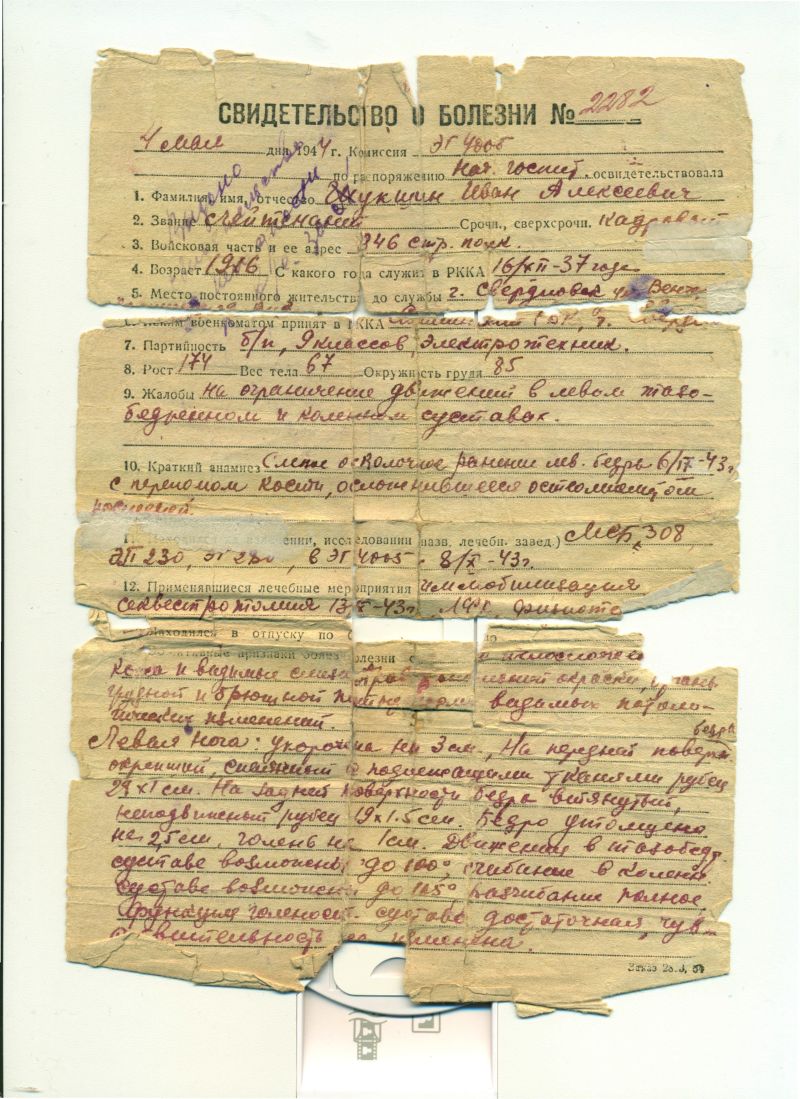 СВИДЕТЕЛЬСТВО О БОЛЕЗНИ № 2282
4 мая дня 1944 г. Комиссия ЭГ 4005
по распоряжению Нач. госпит. освидетельствовала
1. Фамилия, имя, отчество Щукин Иван Алексеевич
2. Звание лейтенант Срочн., сверхсрочн. кадровый
3. Войсковая часть и ее адрес 346 стр. полк.
4. Возраст 1916 С какого года служит в РККА 16/XII-37 года
5. Место постоянного жительства до службы г. Свердловск
военкоматом принят в РККА
7. Партийность б/п, 9 классов, электротехник.
8. Рост 174 Вес тела 67 Окружность груди 85
9. Жалобы на ограничение движений в левом тазо-
бедренном и коленном суставах.
10. Краткий анамнез Слепое осколочное ранение лев. бедра 6/IX-43 г
с переломом кости, осложнившееся остеомиелитом
исследовании назв. лечебн. завед.) МСБ, 308
ЭП 230, ЭГ 230, в ЭГ 4005 - 8/X-43 г.
12. Применявшиеся лечебные мероприятия иммобилизация
секвестротомия 13/X-43 г.
Находился в отпуску по
признаки болезни
Кожа и видимые слизистые окраски,
грудной и брюшной видимых патоло-
гических изменений.
Левая нога укорочена на 3 см., На передней поверхн. бедра
окрепший, спаянный с подлежащими тканями рубец
29 х 1 см. На задней поверхности бедра втянутый,
неподвижный рубец 19 х 1.5 см. Бедро утолщено
на 2,5 см, голень на 1 см. Движение в тазобедр.
суставе возможны до 100°, сгибание в коленн.
суставе возможно до 105° разгибание полное
Функция голеност. сустава достаточная, чув-
ствительность не изменена.
Заказ